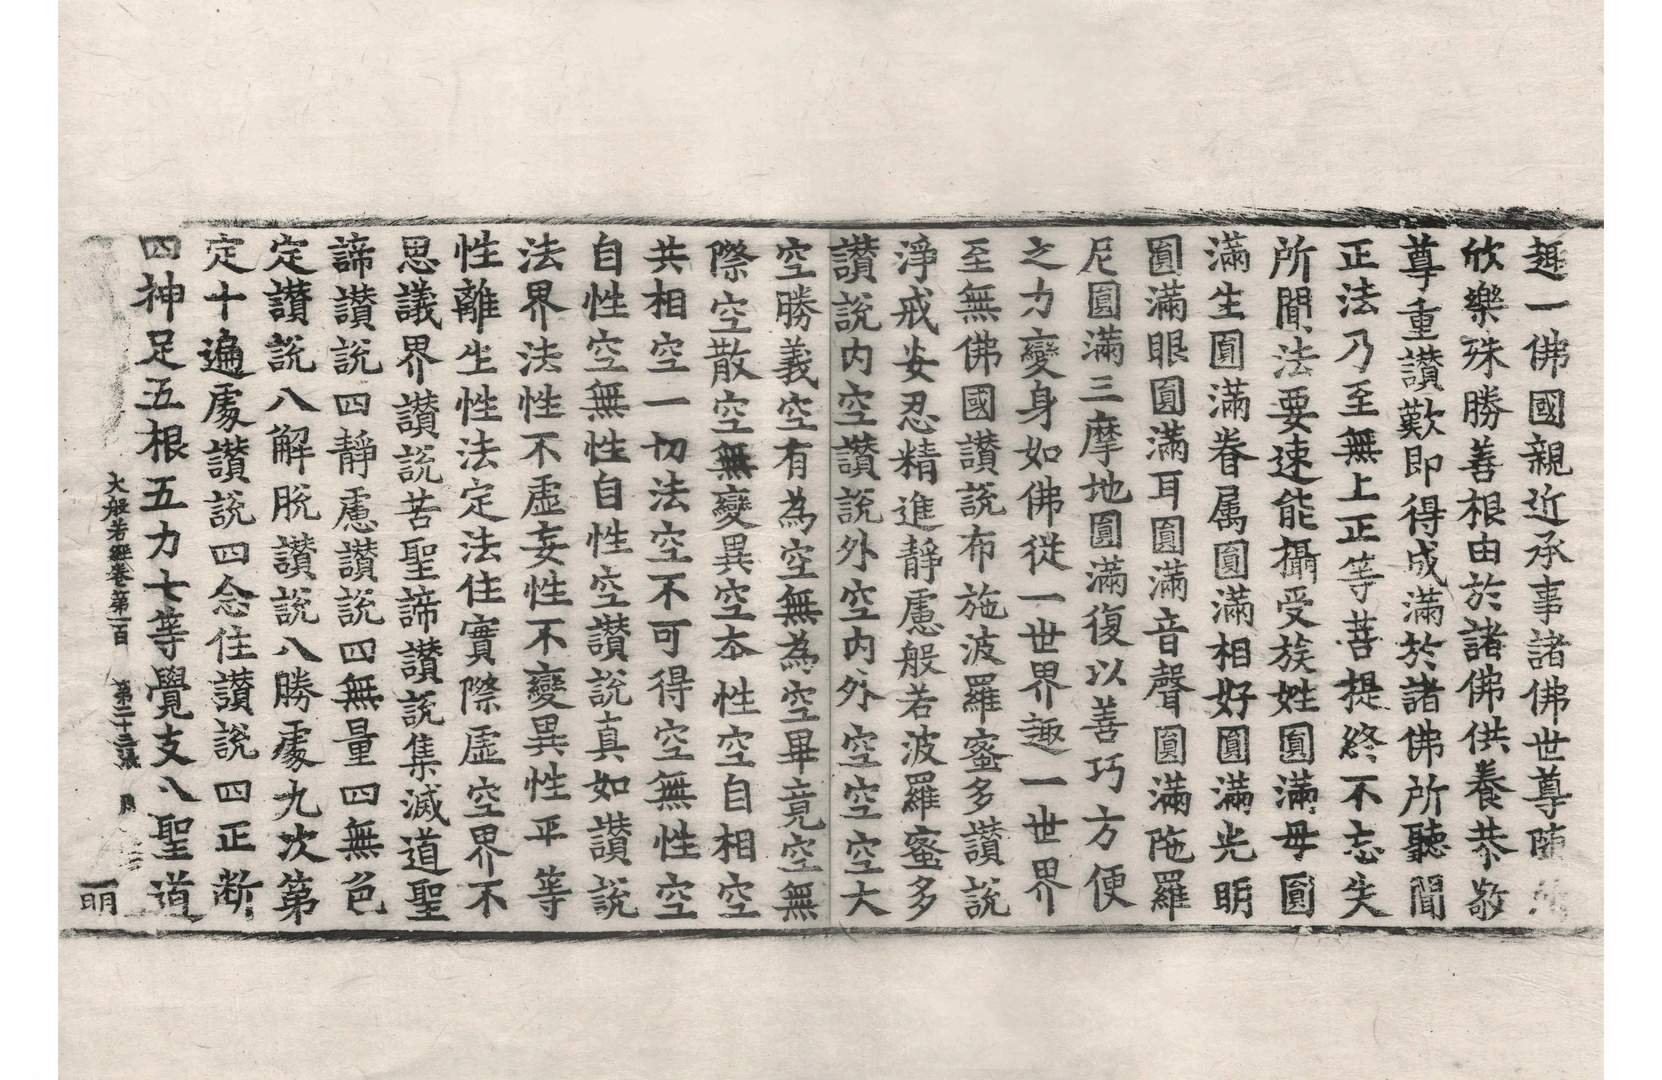 趣一佛國親近承事諸佛世尊隨
欣樂殊勝善根由於諸佛供養恭敬
尊重讚歎即得成滿於諸佛所聽聞
正法乃至無上正等菩提終不忘失
所聞法要速能攝受族姓圓滿母圓
滿生圓滿眷属圓滿相好圓滿光明
圓滿眼圓滿耳圓滿音聲圓滿陁羅
尼圓滿三摩地圓滿復以善巧方便
之力變身如佛從一世界趣一世界
至無佛國讚說布施波羅蜜多讚說
淨戒安忍精進靜慮般若波羅蜜多
讚說內空讚說外空內外空空空大
空勝義空有為空無為空畢竟空無
際空散空無變異空本性空自相空
共相空一切法空不可得空無性空
自性空無性自性空讚說真如讚說
法界法性不虛妄性不變異性平等
性離生性法定法住實際虛空界不
思議界讚說苦聖諦讚說集滅道聖
諦讚說四靜慮讚說四無量四無色
定讚說八解脫讚說八勝處九次第
定十遍處讚說四念住讚說四正断
四神足五根五力七等覺支八聖道
大般若經卷第一百 第二十三張
明